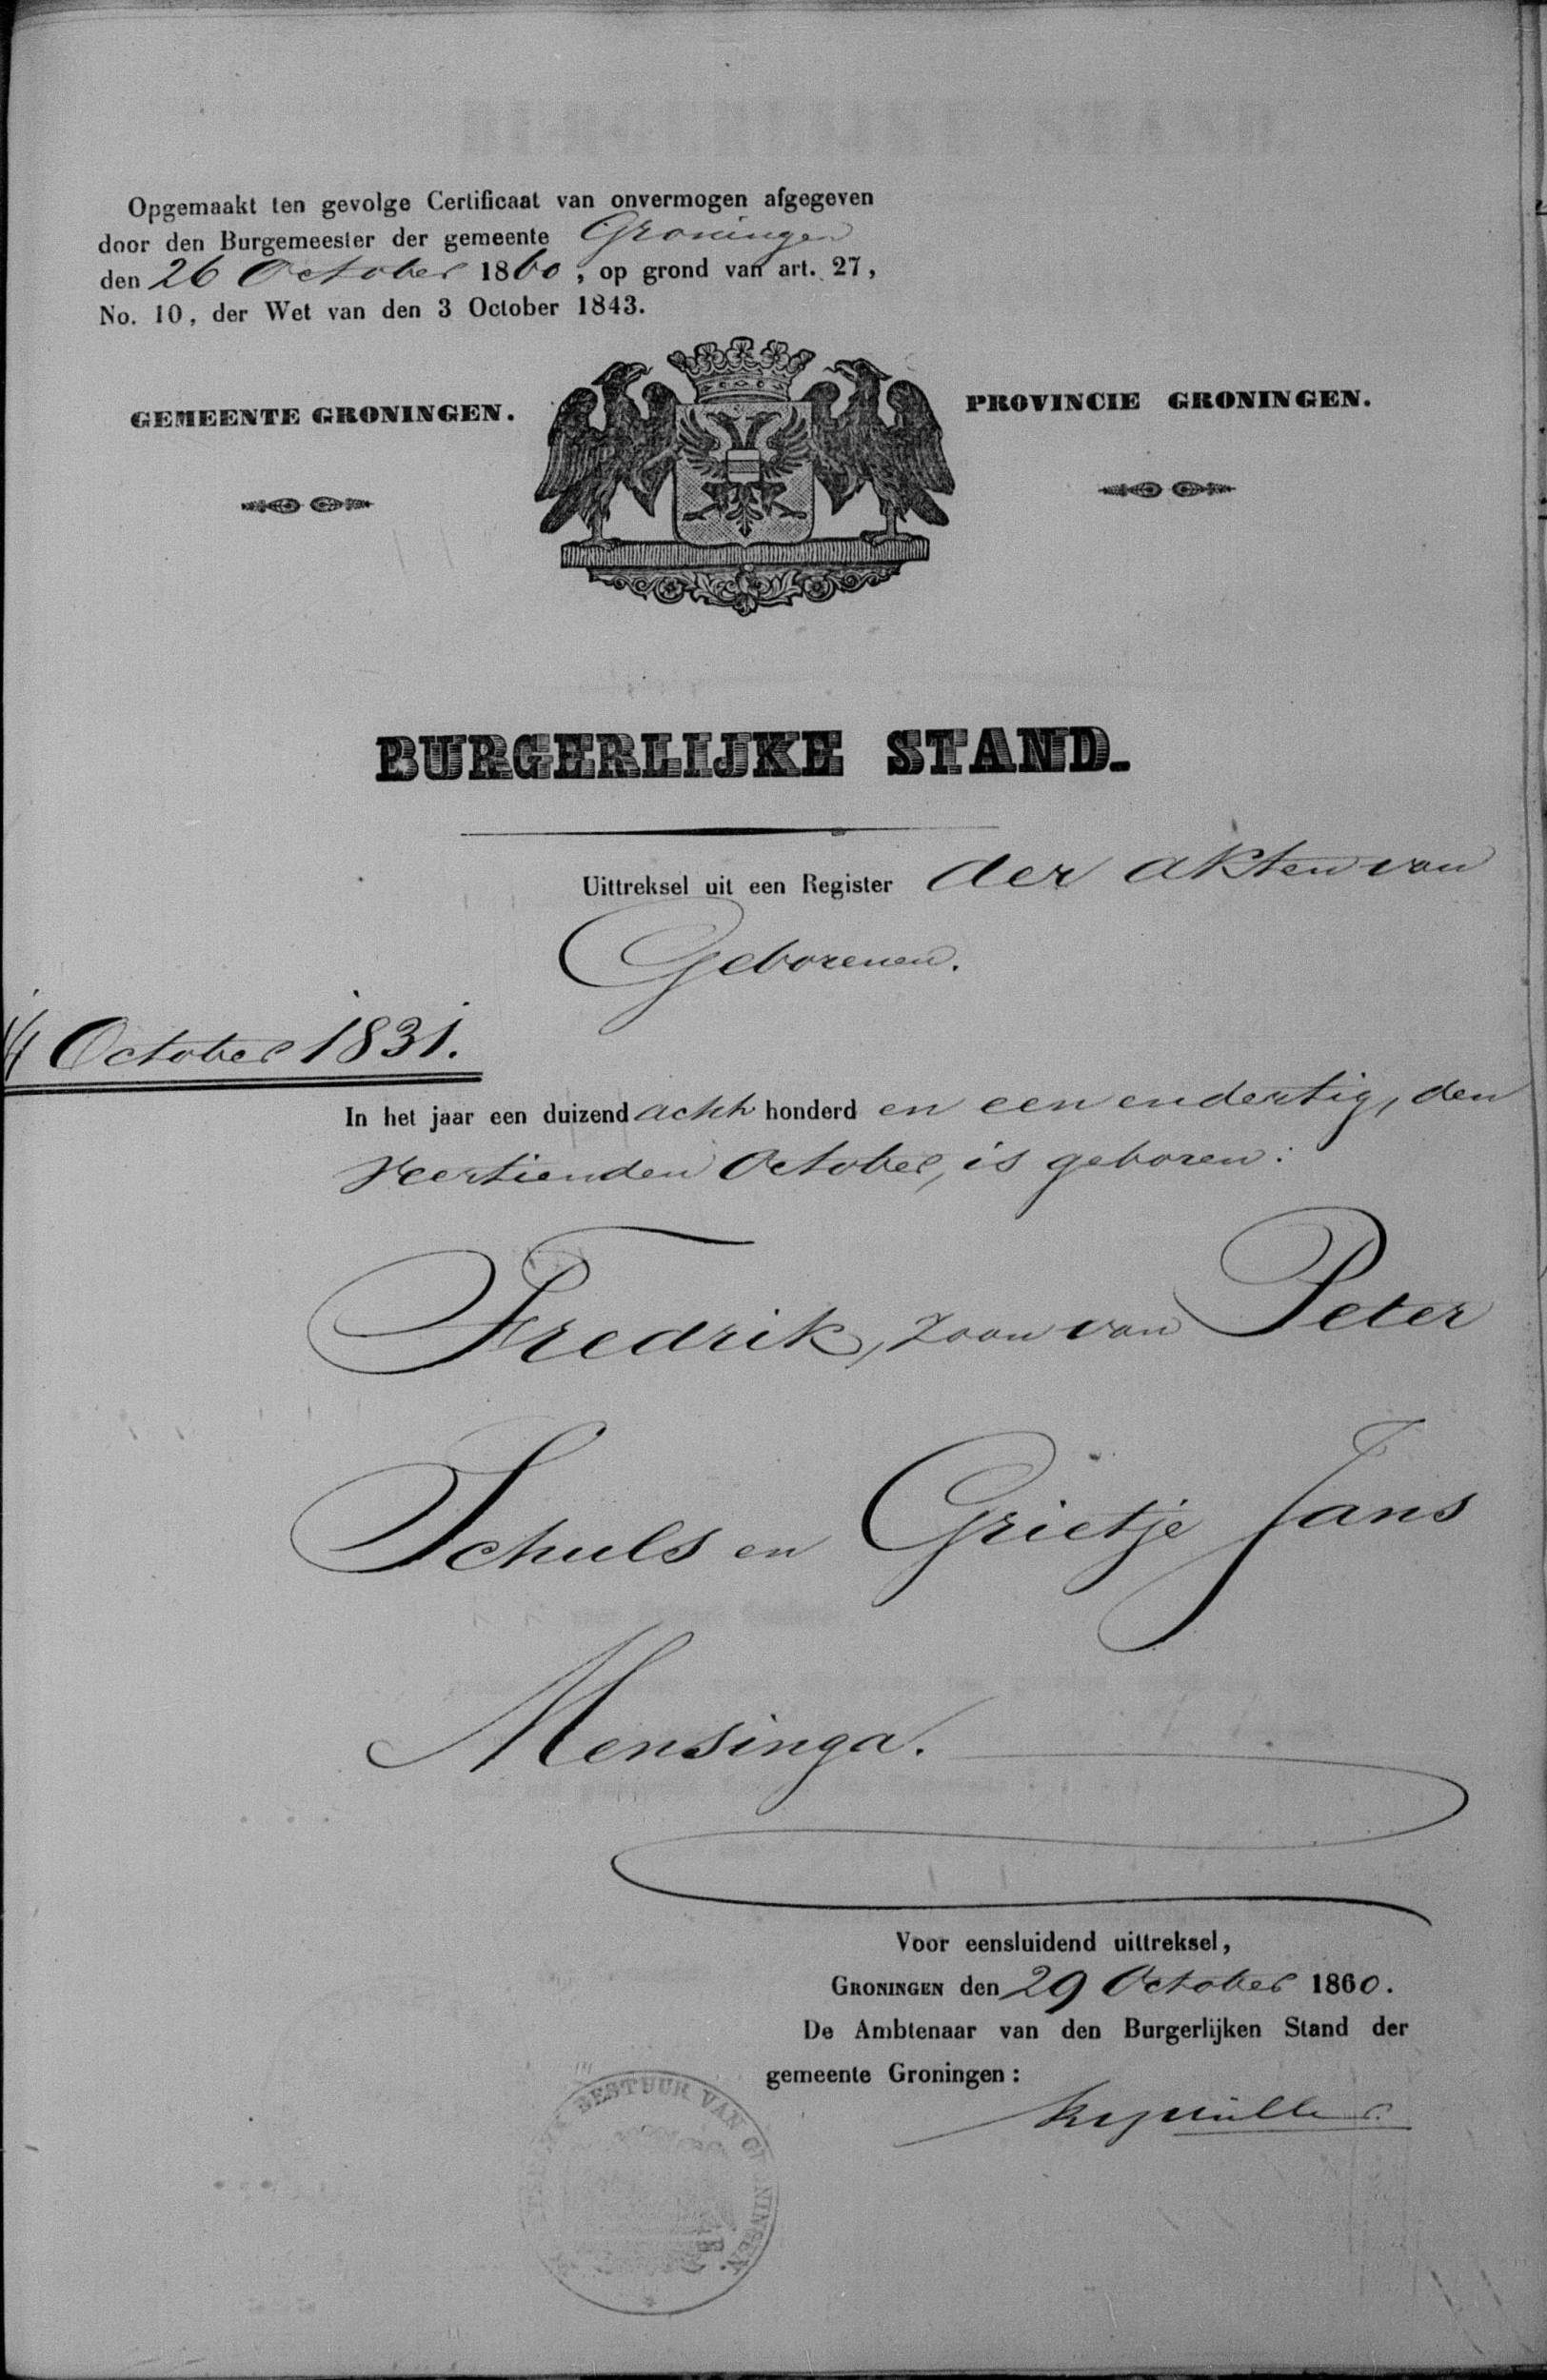 Opgemaakt ten gevolge Certificaat van onvermogen afgegeven
door den Burgemeester der gemeente Groningen
den 26 October 1860, op grond van art. 27,
No. 10, der Wet van den 3 October 1843.
GEMEENTE GRONINGEN.
PROVINCIE GRONINGEN.
BURGERLIJKE STAND.
Uittreksel uit een Register der akten van
Geborenen.
14 October 1831.
In het jaar een duizend acht honderd en een en dertig, den
Veertienden October, is geboren:
Fredrik, zoon van Peter
Schuls en Grietje Jans
Mensinga.
Voor eensluidend uittreksel,
GRONINGEN den 29 October 1860.
De Ambtenaar van den Burgerlijken Stand der
gemeente Groningen:
BESTUUR VAN GRONINGEN.